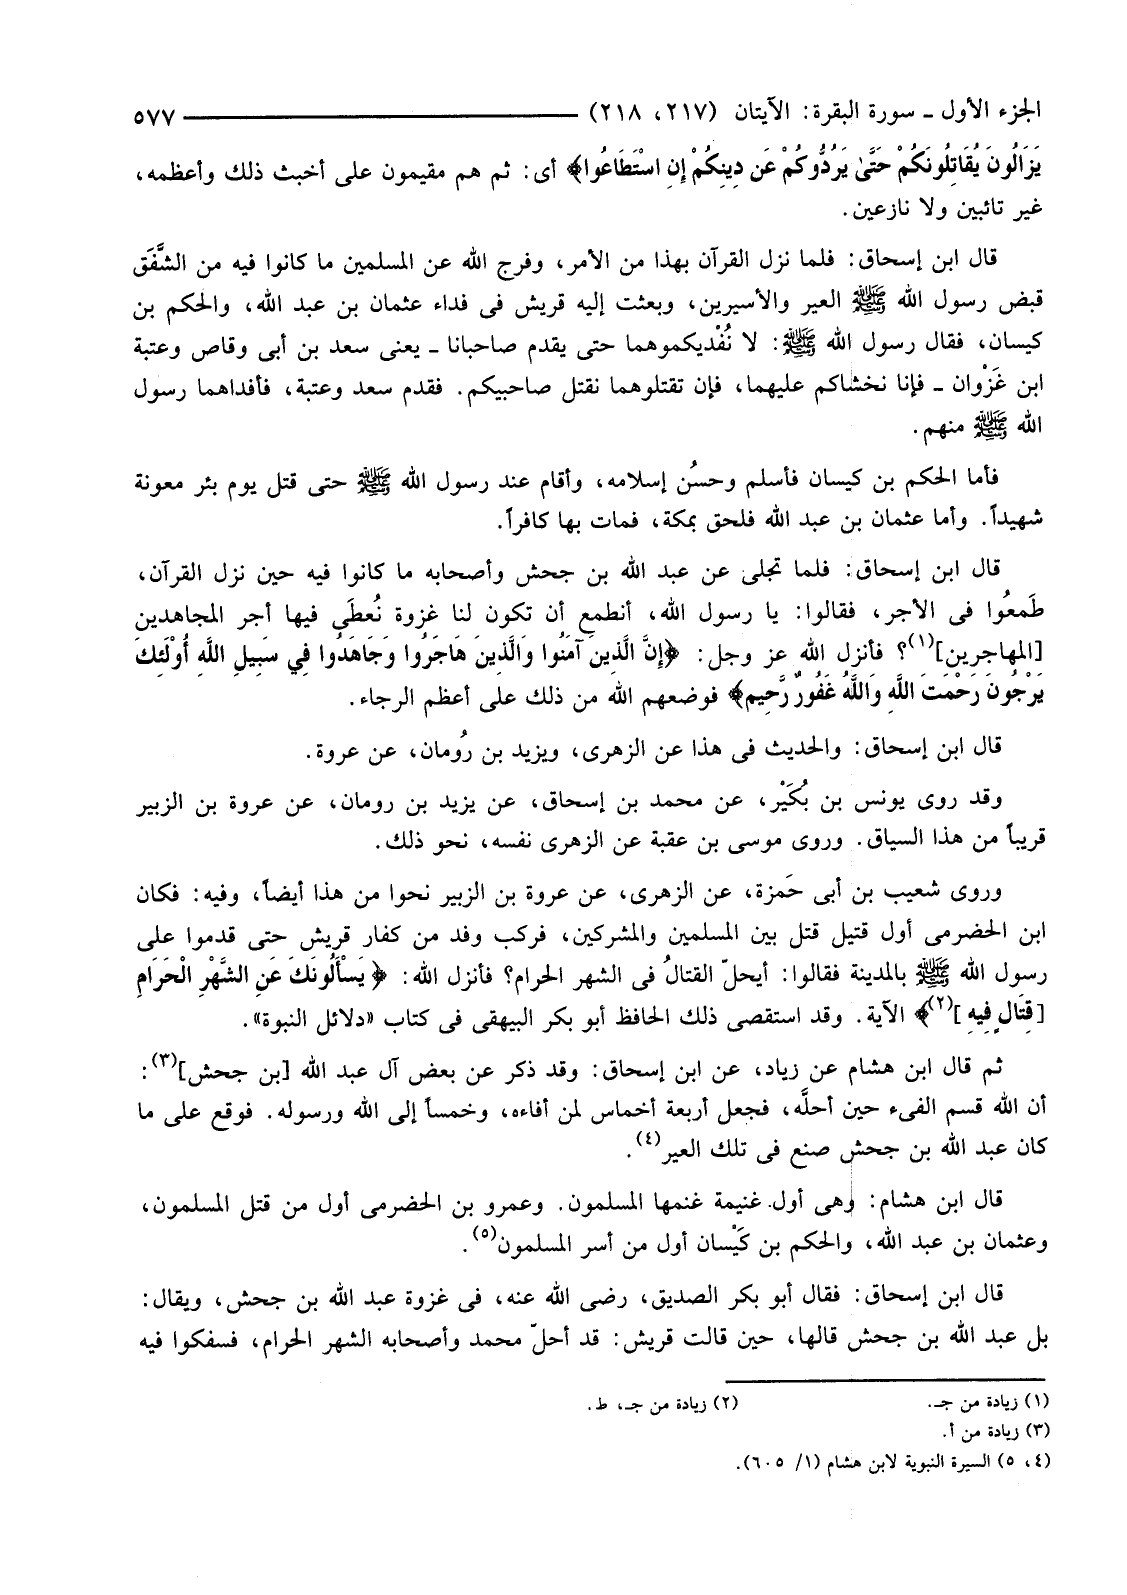 الجزء الأول ـ سورة البقرة: الآيتان (٢١٧، ٢١٨) ٥٧٧
يَزَالُونَ يُقَاتِلُونَكُمْ حَتَّىٰ يَرُدُّوكُمْ عَن دِينِكُمْ إِنِ اسْتَطَاعُوا﴾ أى: ثم هم مقيمون على أخبث ذلك وأعظمه،
غير تائبين ولا نازعين.
قال ابن إسحاق: فلما نزل القرآن بهذا من الأمر، وفرج الله عن المسلمين ما كانوا فيه من الشَّفَق
قبض رسول الله ﷺ العير والأسيرين، وبعثت إليه قريش فى فداء عثمان بن عبد الله، والحكم بن
كيسان، فقال رسول الله ﷺ: لا نُفْديكموهما حتى يقدم صاحبانا ـ يعنى سعد بن أبى وقاص وعتبة
ابن غَزْوان ـ فإنا نخشاكم عليهما، فإن تقتلوهما نقتل صاحبيكم. فقدم سعد وعتبة، فأفداهما رسول
الله ﷺ منهم.
فأما الحكم بن كيسان فأسلم وحسُن إسلامه، وأقام عند رسول الله ﷺ حتى قتل يوم بئر معونة
شهيداً. وأما عثمان بن عبد الله فلحق بمكة، فمات بها كافراً.
قال ابن إسحاق: فلما تجلى عن عبد الله بن جحش وأصحابه ما كانوا فيه حين نزل القرآن،
طَمعُوا فى الأجر، فقالوا: يا رسول الله، أنطمع أن تكون لنا غزوة نُعطَى فيها أجر المجاهدين
[المهاجرين](١)؟ فأنزل الله عز وجل: ﴿إِنَّ الَّذِينَ آمَنُوا وَالَّذِينَ هَاجَرُوا وَجَاهَدُوا فِي سَبِيلِ اللَّهِ أُوْلَئِكَ
يَرْجُونَ رَحْمَتَ اللَّهِ وَاللَّهُ غَفُورٌ رَّحِيم﴾ فوضعهم الله من ذلك على أعظم الرجاء.
قال ابن إسحاق: والحديث فى هذا عن الزهرى، ويزيد بن رُومان، عن عروة.
وقد روى يونس بن بُكَيْر، عن محمد بن إسحاق، عن يزيد بن رومان، عن عروة بن الزبير
قريباً من هذا السياق. وروى موسى بن عقبة عن الزهرى نفسه، نحو ذلك.
وروى شعيب بن أبى حَمزة، عن الزهرى، عن عروة بن الزبير نحوا من هذا أيضاً، وفيه: فكان
ابن الحضرمى أول قتيل قتل بين المسلمين والمشركين، فركب وفد من كفار قريش حتى قدموا على
رسول الله ﷺ بالمدينة فقالوا: أيحلّ القتالُ فى الشهر الحرام؟ فأنزل الله: ﴿يَسْأَلُونَكَ عَنِ الشَّهْرِ الْحَرَامِ
[قِتَالٍ فِيهِ](٢)﴾ الآية. وقد استقصى ذلك الحافظ أبو بكر البيهقى فى كتاب «دلائل النبوة».
ثم قال ابن هشام عن زياد، عن ابن إسحاق: وقد ذكر عن بعض آل عبد الله [بن جحش](٣):
أن الله قسم الفىء حين أحلَّه، فجعل أربعة أخماس لمن أفاءه، وخمساً إلى الله ورسوله. فوقع على ما
كان عبد الله بن جحش صنع فى تلك العير(٤).
قال ابن هشام: وهى أول غنيمة غنمها المسلمون. وعمرو بن الحضرمى أول من قتل المسلمون،
وعثمان بن عبد الله، والحكم بن كَيْسان أول من أسر المسلمون(٥).
قال ابن إسحاق: فقال أبو بكر الصديق، رضى الله عنه، فى غزوة عبد الله بن جحش، ويقال:
بل عبد الله بن جحش قالها، حين قالت قريش: قد أحلّ محمد وأصحابه الشهر الحرام، فسفكوا فيه
(١) زيادة من جـ. (٢) زيادة من جـ، ط.
(٣) زيادة من أ.
(٤، ٥) السيرة النبوية لابن هشام (١/ ٦٠٥).